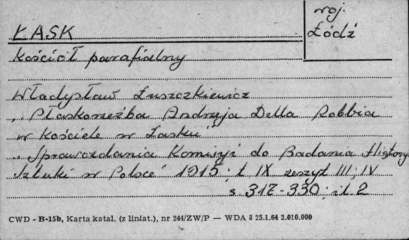 woj.
ŁASK Łódź
Kościół parafialny
Władysław Łuszczkiewicz
„Płaskorzeźba Andrzeja Della Robbia
w kościele w Łasku"
„Sprawozdania Komisyi do Badania History
Sztuki w Polsce" 1915; t IX zeszyt III, IV
s. 317-330; il. 2
CWD - B-15b, Karta katal. (z liniat.), nr 244/ZW/P — WDA 8 25.1.64 2.010.000